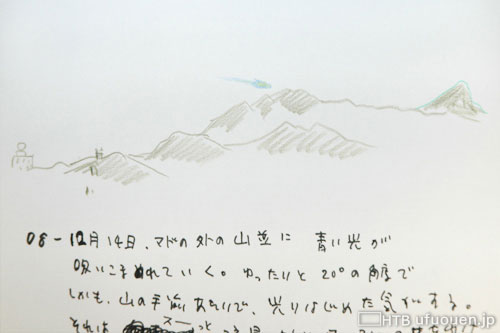 08-12月14日、マドの外の山並に 青い光が
吸いこまれていく。ゆったりと20°の角度で
しかも、山の手前あたりで、光りはじめた気がする。
それは スーっと
HTB ufuouen.jp